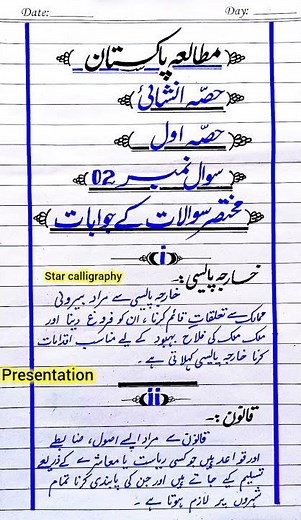 Date: Day:
مطالعہ پاکستان
حصّہ انشائی
حصّہ اول
سوال نمبر 02
مختصر سوالات کے جوابات
i
Star calligraphy
خارجہ پالیسی:-
خارجہ پالیسی سے مراد بیرونی
ممالک سے تعلقات قائم کرنا، ان کو فروغ دینا اور
ملک کی فلاح بہبود کے لیے مناسب اقدامات
کرنا خارجہ پالیسی کہلاتی ہے۔
Presentation
ii
قانون:-
قانون سے مراد ایسے اصول، ضابطے
اور قواعد ہیں جو کسی ریاست یا معاشرے کے ذریعے
تسلیم کیے جاتے ہیں اور جن کی پابندی کرنا تمام
شہریوں پر لازم ہوتا ہے۔